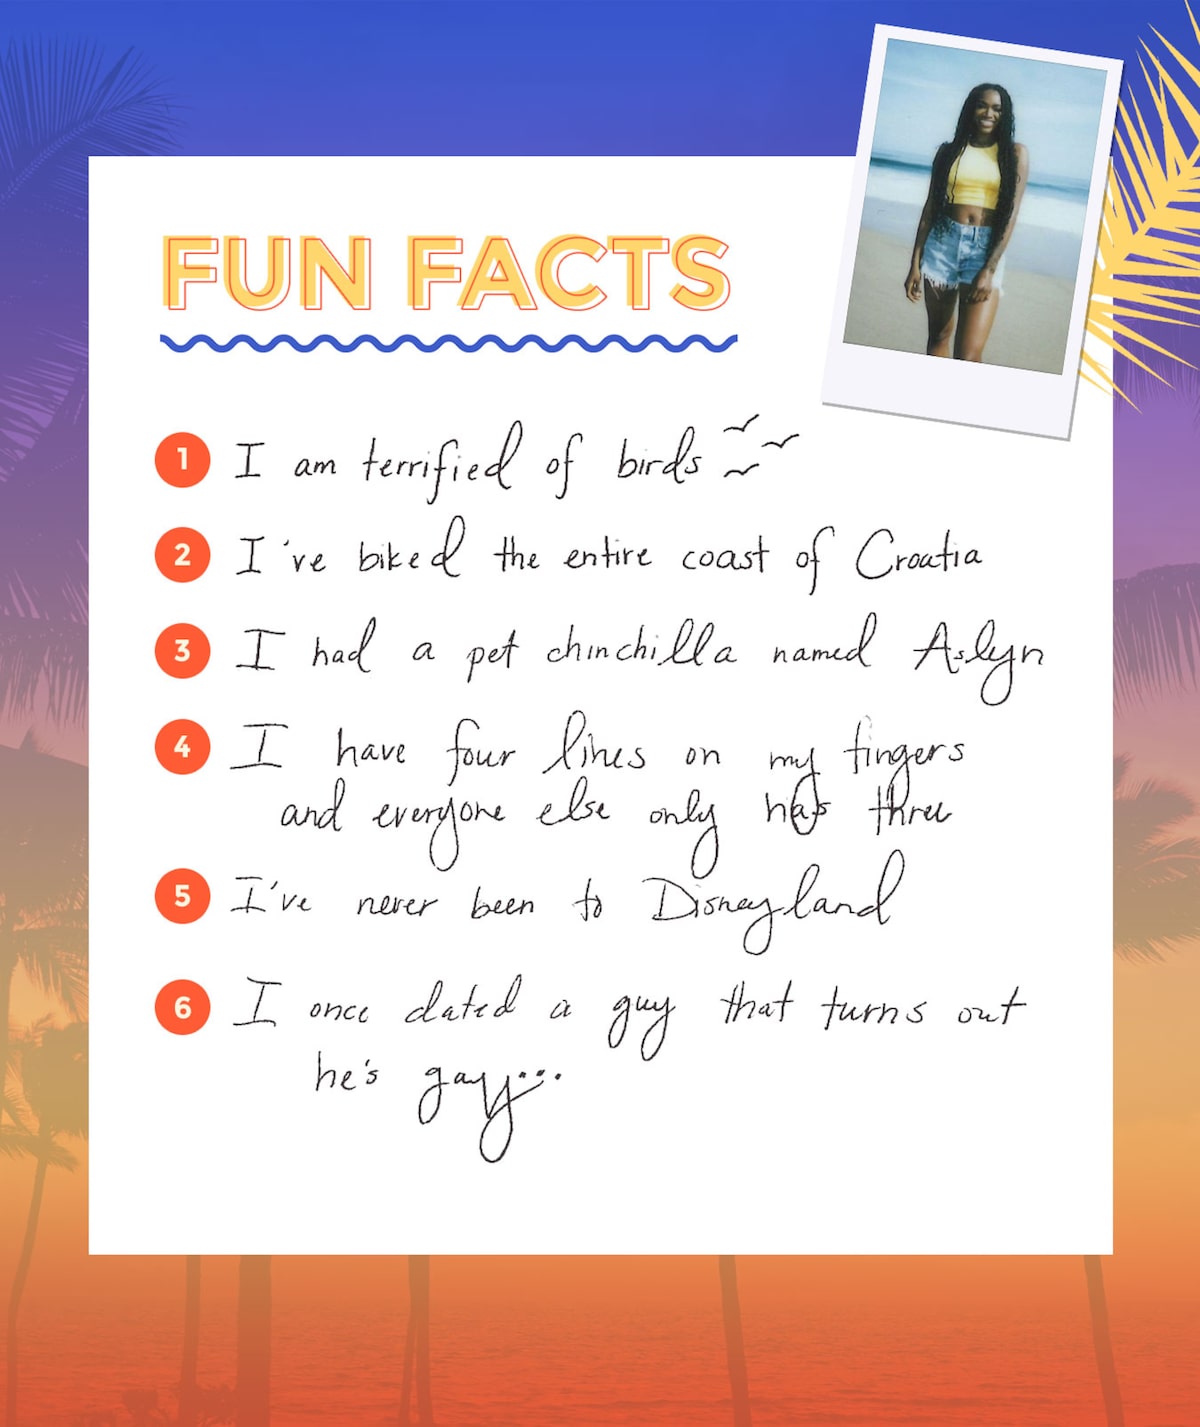 FUN FACTS
1 I am terrified of birds
2 I've biked the entire coast of Croatia
3 I had a pet chinchilla named Aslyn
4 I have four lines on my fingers
and everyone else only has three
5 I've never been to Disneyland
6 I once dated a guy that turns out
he's gay...